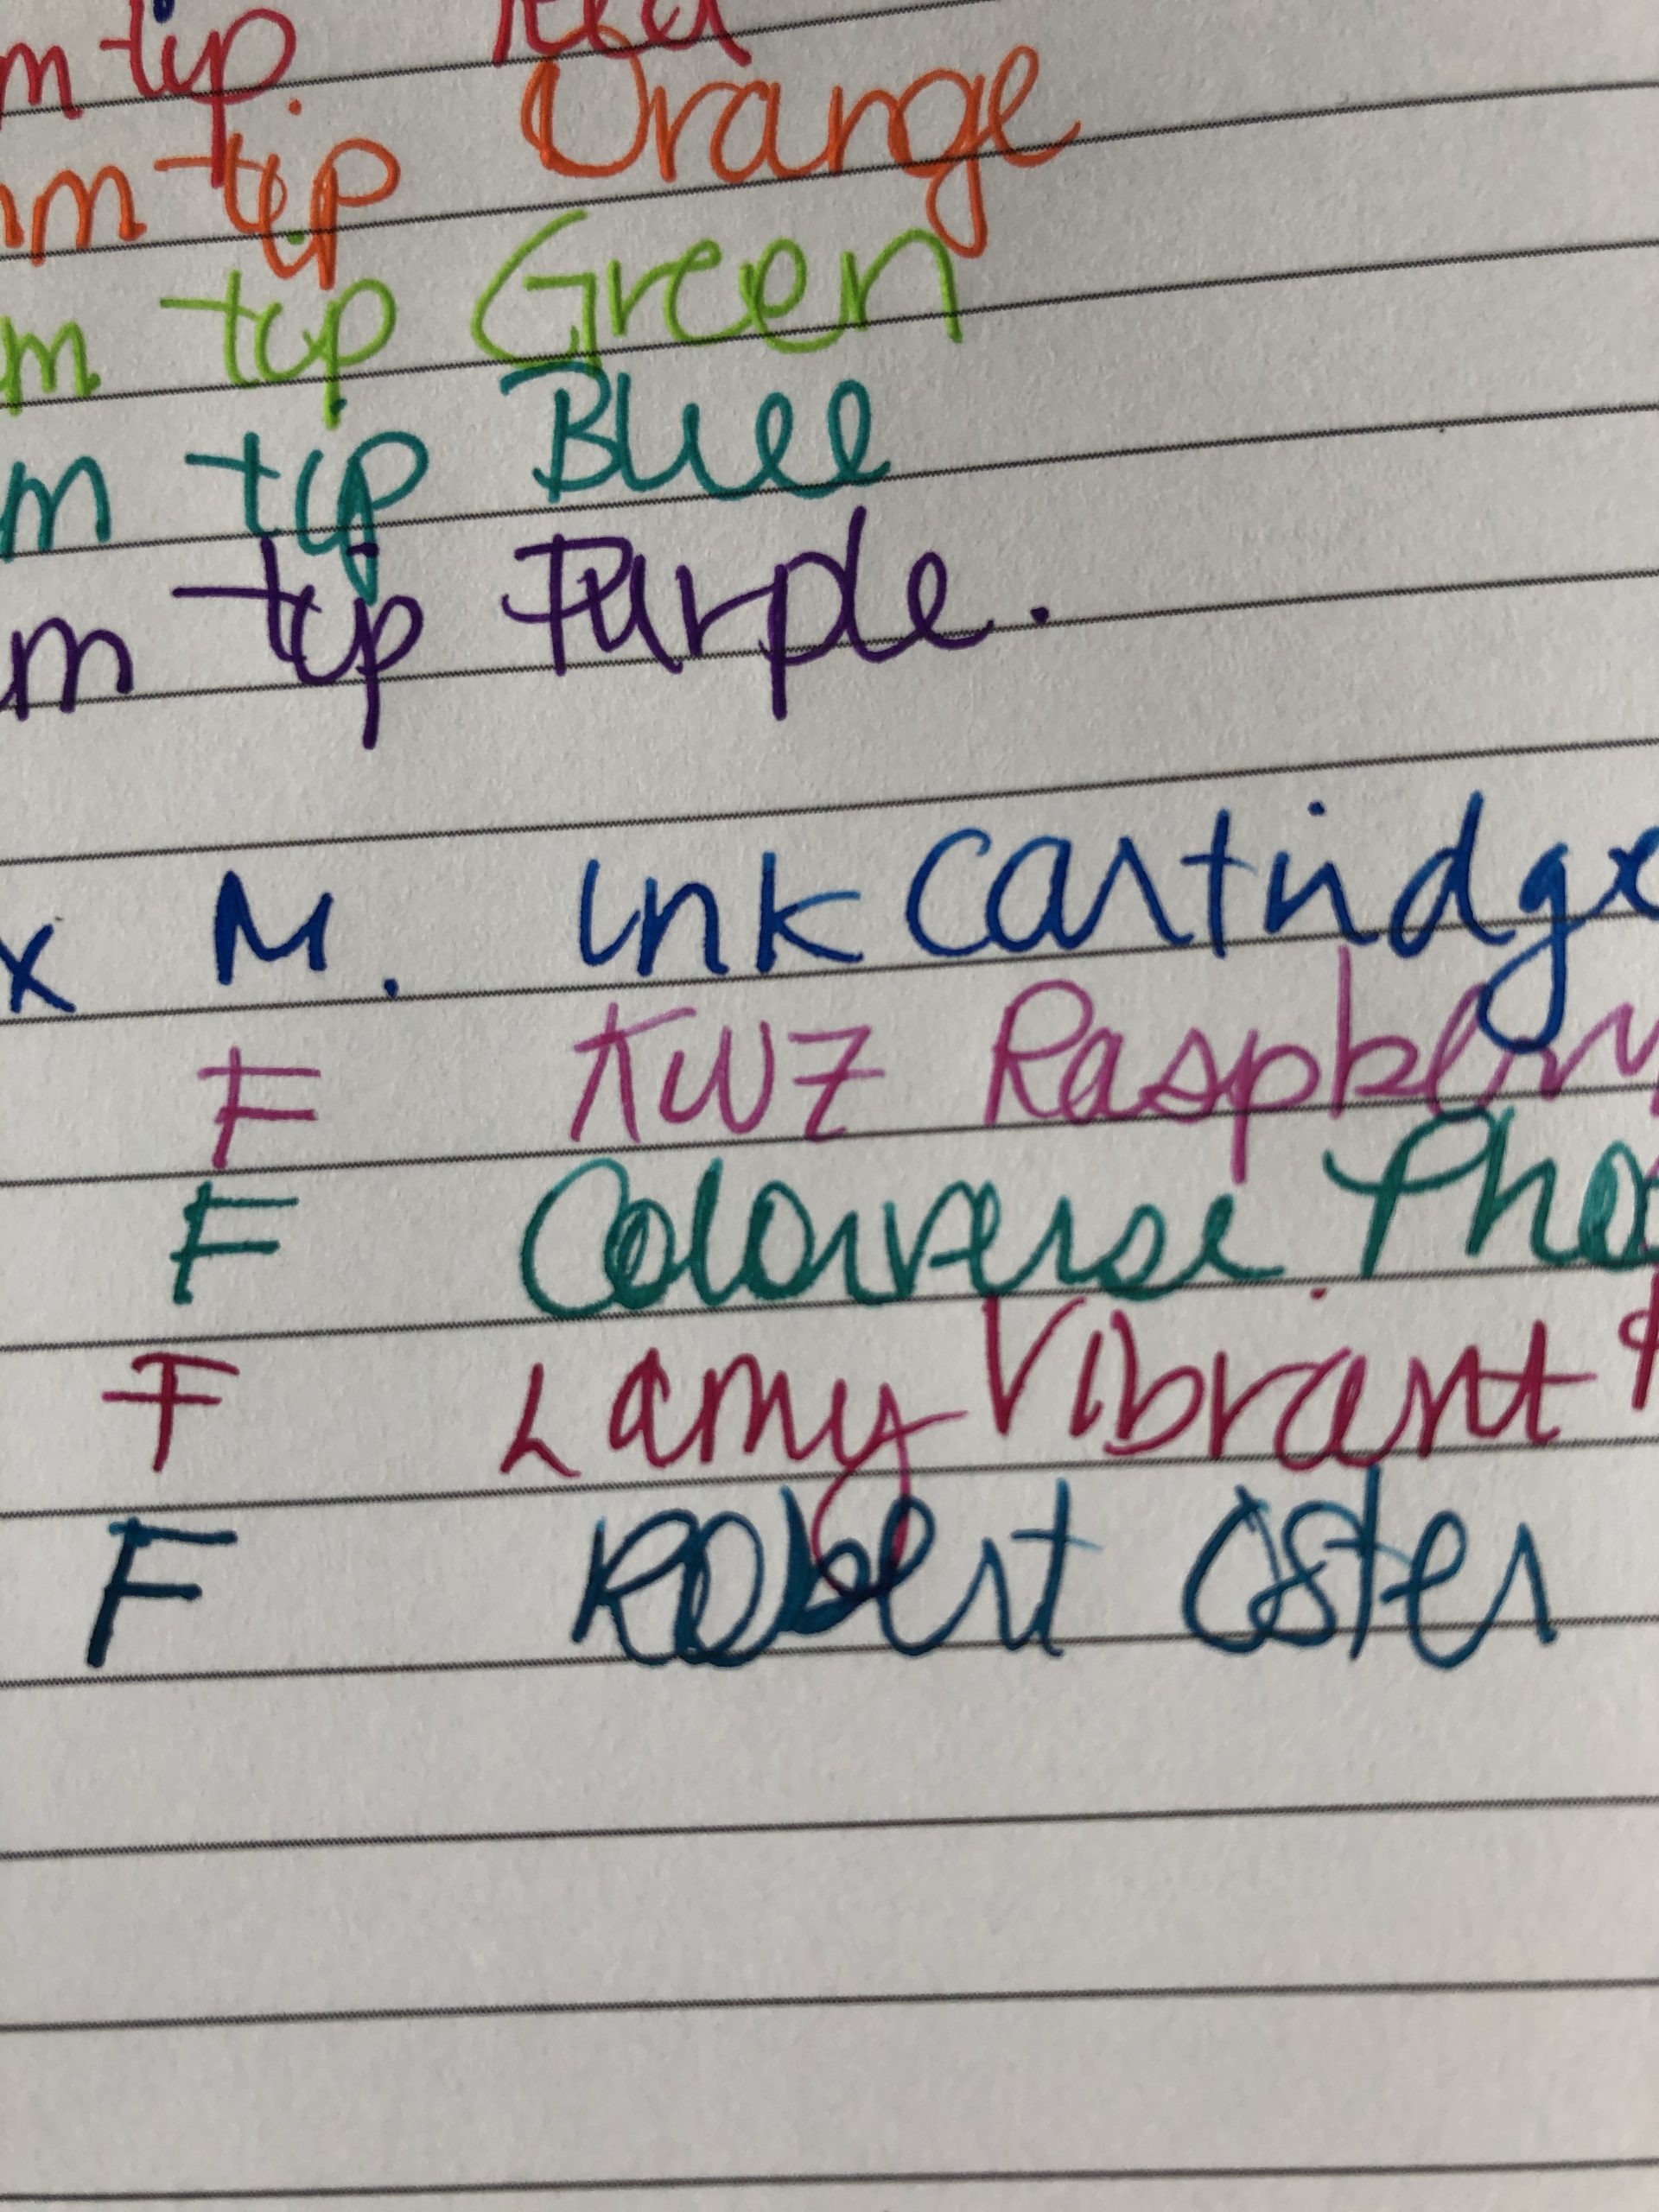 m tip Red
mm tip Orange
m tip Green
m tip Blue
m tip Purple.
x M. Ink Cartridge
F KWZ Raspberry
F Colorverse
F Lamy Vibrant
F Robert Oster